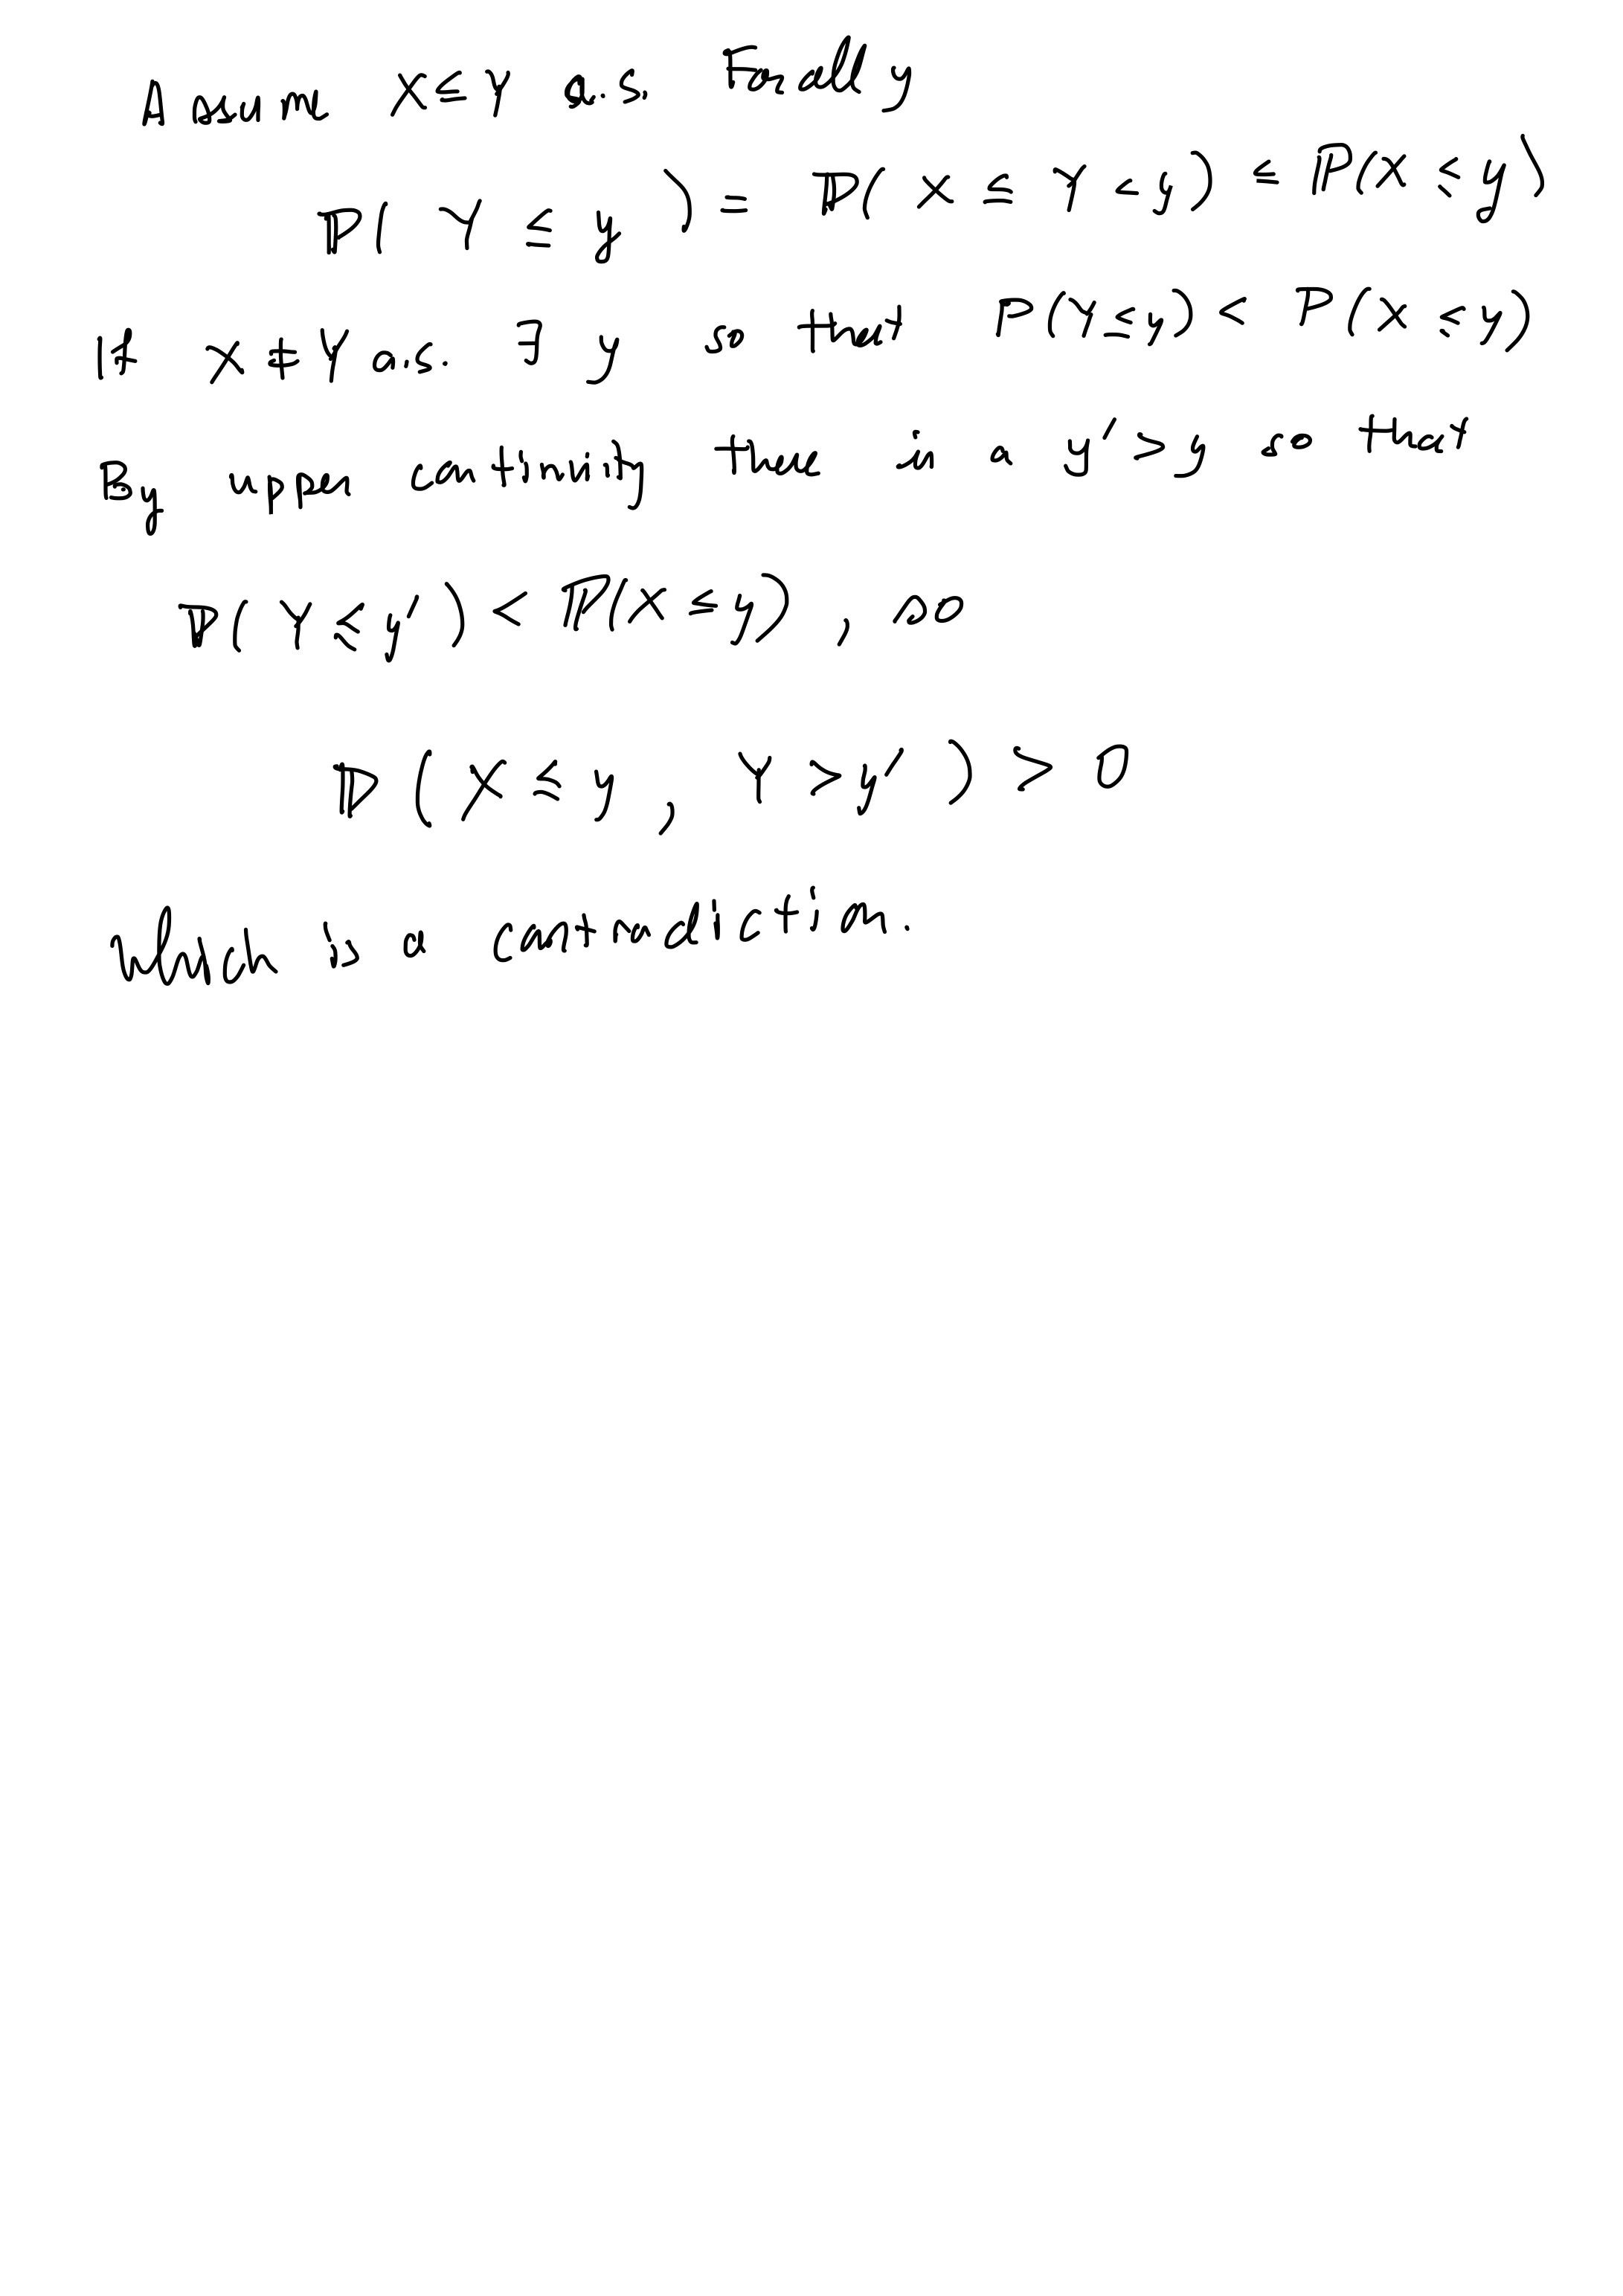 Assume X ≤ Y a.s. For all y
ℙ( Y ≤ y ) = ℙ( X ≤ Y ≤ y) ≤ ℙ(X ≤ y)
If X ≠ Y a.s. ∃ y so that ℙ(Y ≤ y) < ℙ(X ≤ y)
By upper continuity there is a y' > y so that
ℙ( Y ≤ y' ) < ℙ(X ≤ y) , so
ℙ ( X ≤ y , Y > y' ) > 0
Which is a contradiction.